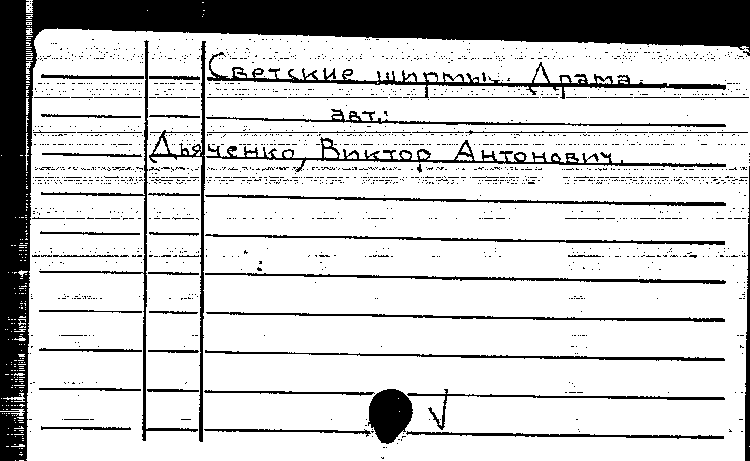 Светские ширмы. Драма.
авт.:
Дьяченко, Виктор Антонович.